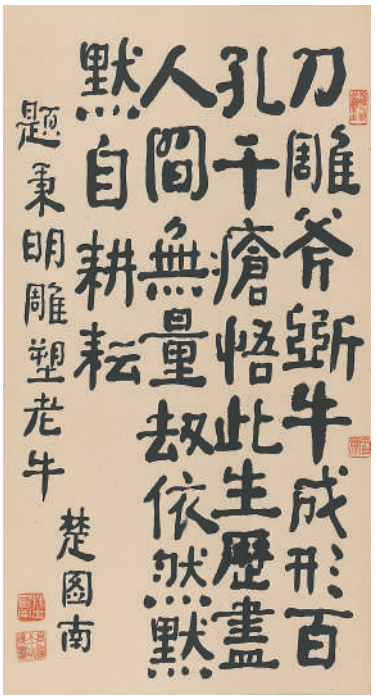 刀雕斧斲牛成形百
孔千瘡悟此生歷盡
人間無量刧依然默
默自耕耘
題秉明雕塑老牛
楚圖南